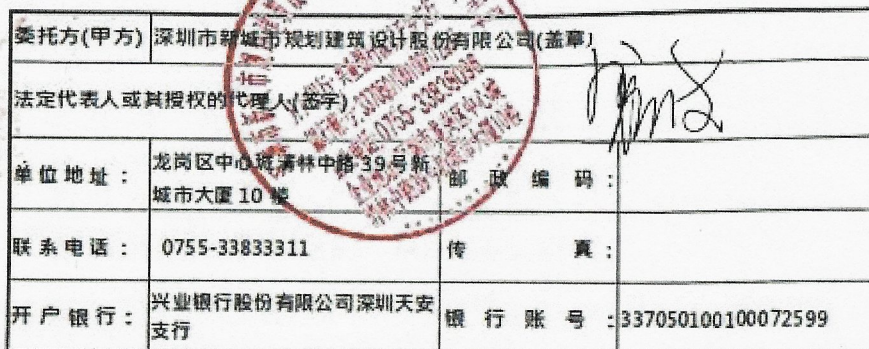 委托方(甲方) 深圳市新城市规划建筑设计股份有限公司(盖章)
法定代表人或其授权的代理人(签字)
单位地址： 龙岗区中心城清林中路39号新
城市大厦10楼
邮政编码：
联系电话： 0755-33833311 传真：
开户银行： 兴业银行股份有限公司深圳天安
支行
银行账号：337050100100072599